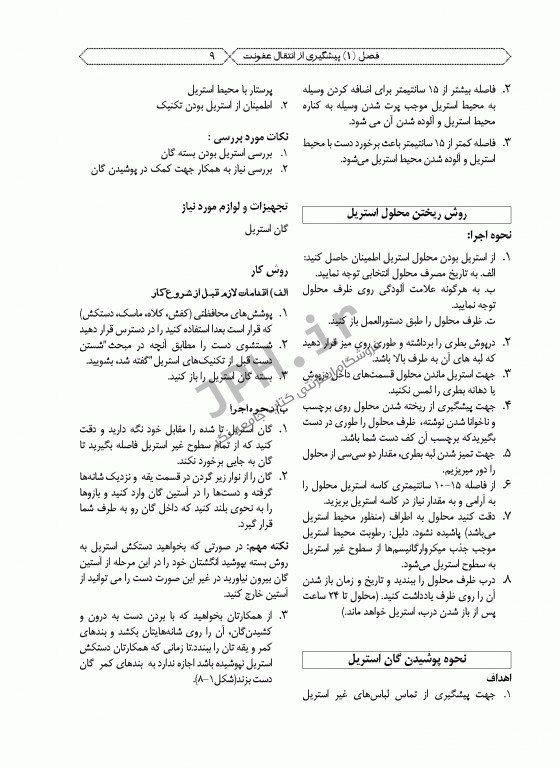 فصل (۱) پیشگیری از انتقال عفونت ۹
۲. فاصله بیشتر از ۱۵ سانتیمتر برای اضافه کردن وسیله
به محیط استریل موجب پرت شدن وسیله به کناره
محیط استریل و آلوده شدن آن می شود.
۳. فاصله کمتر از ۱۵ سانتیمتر باعث برخورد دست با محیط
استریل و آلوده شدن محیط استریل می‌شود.
روش ریختن محلول استریل
نحوه اجرا:
۱. از استریل بودن محلول استریل اطمینان حاصل کنید:
الف. به تاریخ مصرف محلول انتخابی توجه نمایید.
ب. به هرگونه علامت آلودگی روی ظرف محلول
توجه نمایید.
ت. ظرف محلول را طبق دستورالعمل باز کنید.
۲. درپوش بطری را برداشته و طوری روی میز قرار دهید
که لبه های آن به طرف بالا باشد.
۳. جهت استریل ماندن محلول قسمت‌های داخل درپوش
یا دهانه بطری را لمس نکنید.
۴. جهت پیشگیری از ریخته شدن محلول روی برچسب
و ناخوانا شدن نوشته، ظرف محلول را طوری در دست
بگیریدکه برچسب آن کف دست شما باشد.
۵. جهت تمیز شدن لبه بطری، مقدار دو سی‌سی از محلول
را دور میریزیم.
۶. از فاصله ۱۵-۱۰ سانتیمتری کاسه استریل محلول را
به آرامی و به مقدار نیاز در کاسه استریل بریزید.
۷. دقت کنید محلول به اطراف (منظور محیط استریل
می‌باشد) پاشیده نشود. دلیل: رطوبت محیط استریل
موجب جذب میکروارگانیسم‌ها از سطوح غیر استریل
به سطوح استریل می‌شود.
۸. درب ظرف محلول را ببندید و تاریخ و زمان باز شدن
آن را روی ظرف یادداشت کنید. (محلول تا ۲۴ ساعت
پس از باز شدن درب، استریل خواهد ماند.)
نحوه پوشیدن گان استریل
اهداف
۱. جهت پیشگیری از تماس لباس‌های غیر استریل
پرستار با محیط استریل
۲. اطمینان از استریل بودن تکنیک
نکات مورد بررسی :
۱. بررسی استریل بودن بسته گان
۲. بررسی نیاز به همکار جهت کمک در پوشیدن گان
تجهیزات و لوازم مورد نیاز
گان استریل
روش کار
الف) اقدامات لازم قبل از شروع کار
۱. پوشش‌های محافظتی (کفش، کلاه، ماسک، دستکش)
که قرار است بعدا استفاده کنید را در دسترس قرار دهید
۲. شستشوی دست را مطابق آنچه در مبحث"شستن
دست قبل از تکنیک‌های استریل"گفته شد، بشویید.
۳. بسته گان استریل را باز کنید.
ب) نحوه اجرا
۱. گان استریل تا شده را مقابل خود نگه دارید و دقت
کنید که از تمام سطوح غیر استریل فاصله بگیرید تا
گان به جایی برخورد نکند.
۲. گان را از نوار زیر گردن در قسمت یقه و نزدیک شانه‌ها
گرفته و دست‌ها را در آستین گان وارد کنید و بازوها
را به نحوی بلند کنید که داخل گان رو به طرف شما
قرار گیرد.
نکته مهم: در صورتی که بخواهید دستکش استریل به
روش بسته بپوشید انگشتان خود را در این مرحله از آستین
گان بیرون نیاورید در غیر این صورت دست را می توانید از
آستین خارج کنید.
۳. از همکارتان بخواهید که با بردن دست به درون و
کشیدن‌گان، آن را روی شانه‌هایتان بکشد و بندهای
کمر و یقه تان را ببندد.تا زمانی که همکارتان دستکش
استریل نپوشیده باشد اجازه ندارد به بندهای کمر گان
دست بزند(شکل۱-۸).
JPH.ir
فروشگاه اینترنتی کتاب جامعه‌نگر